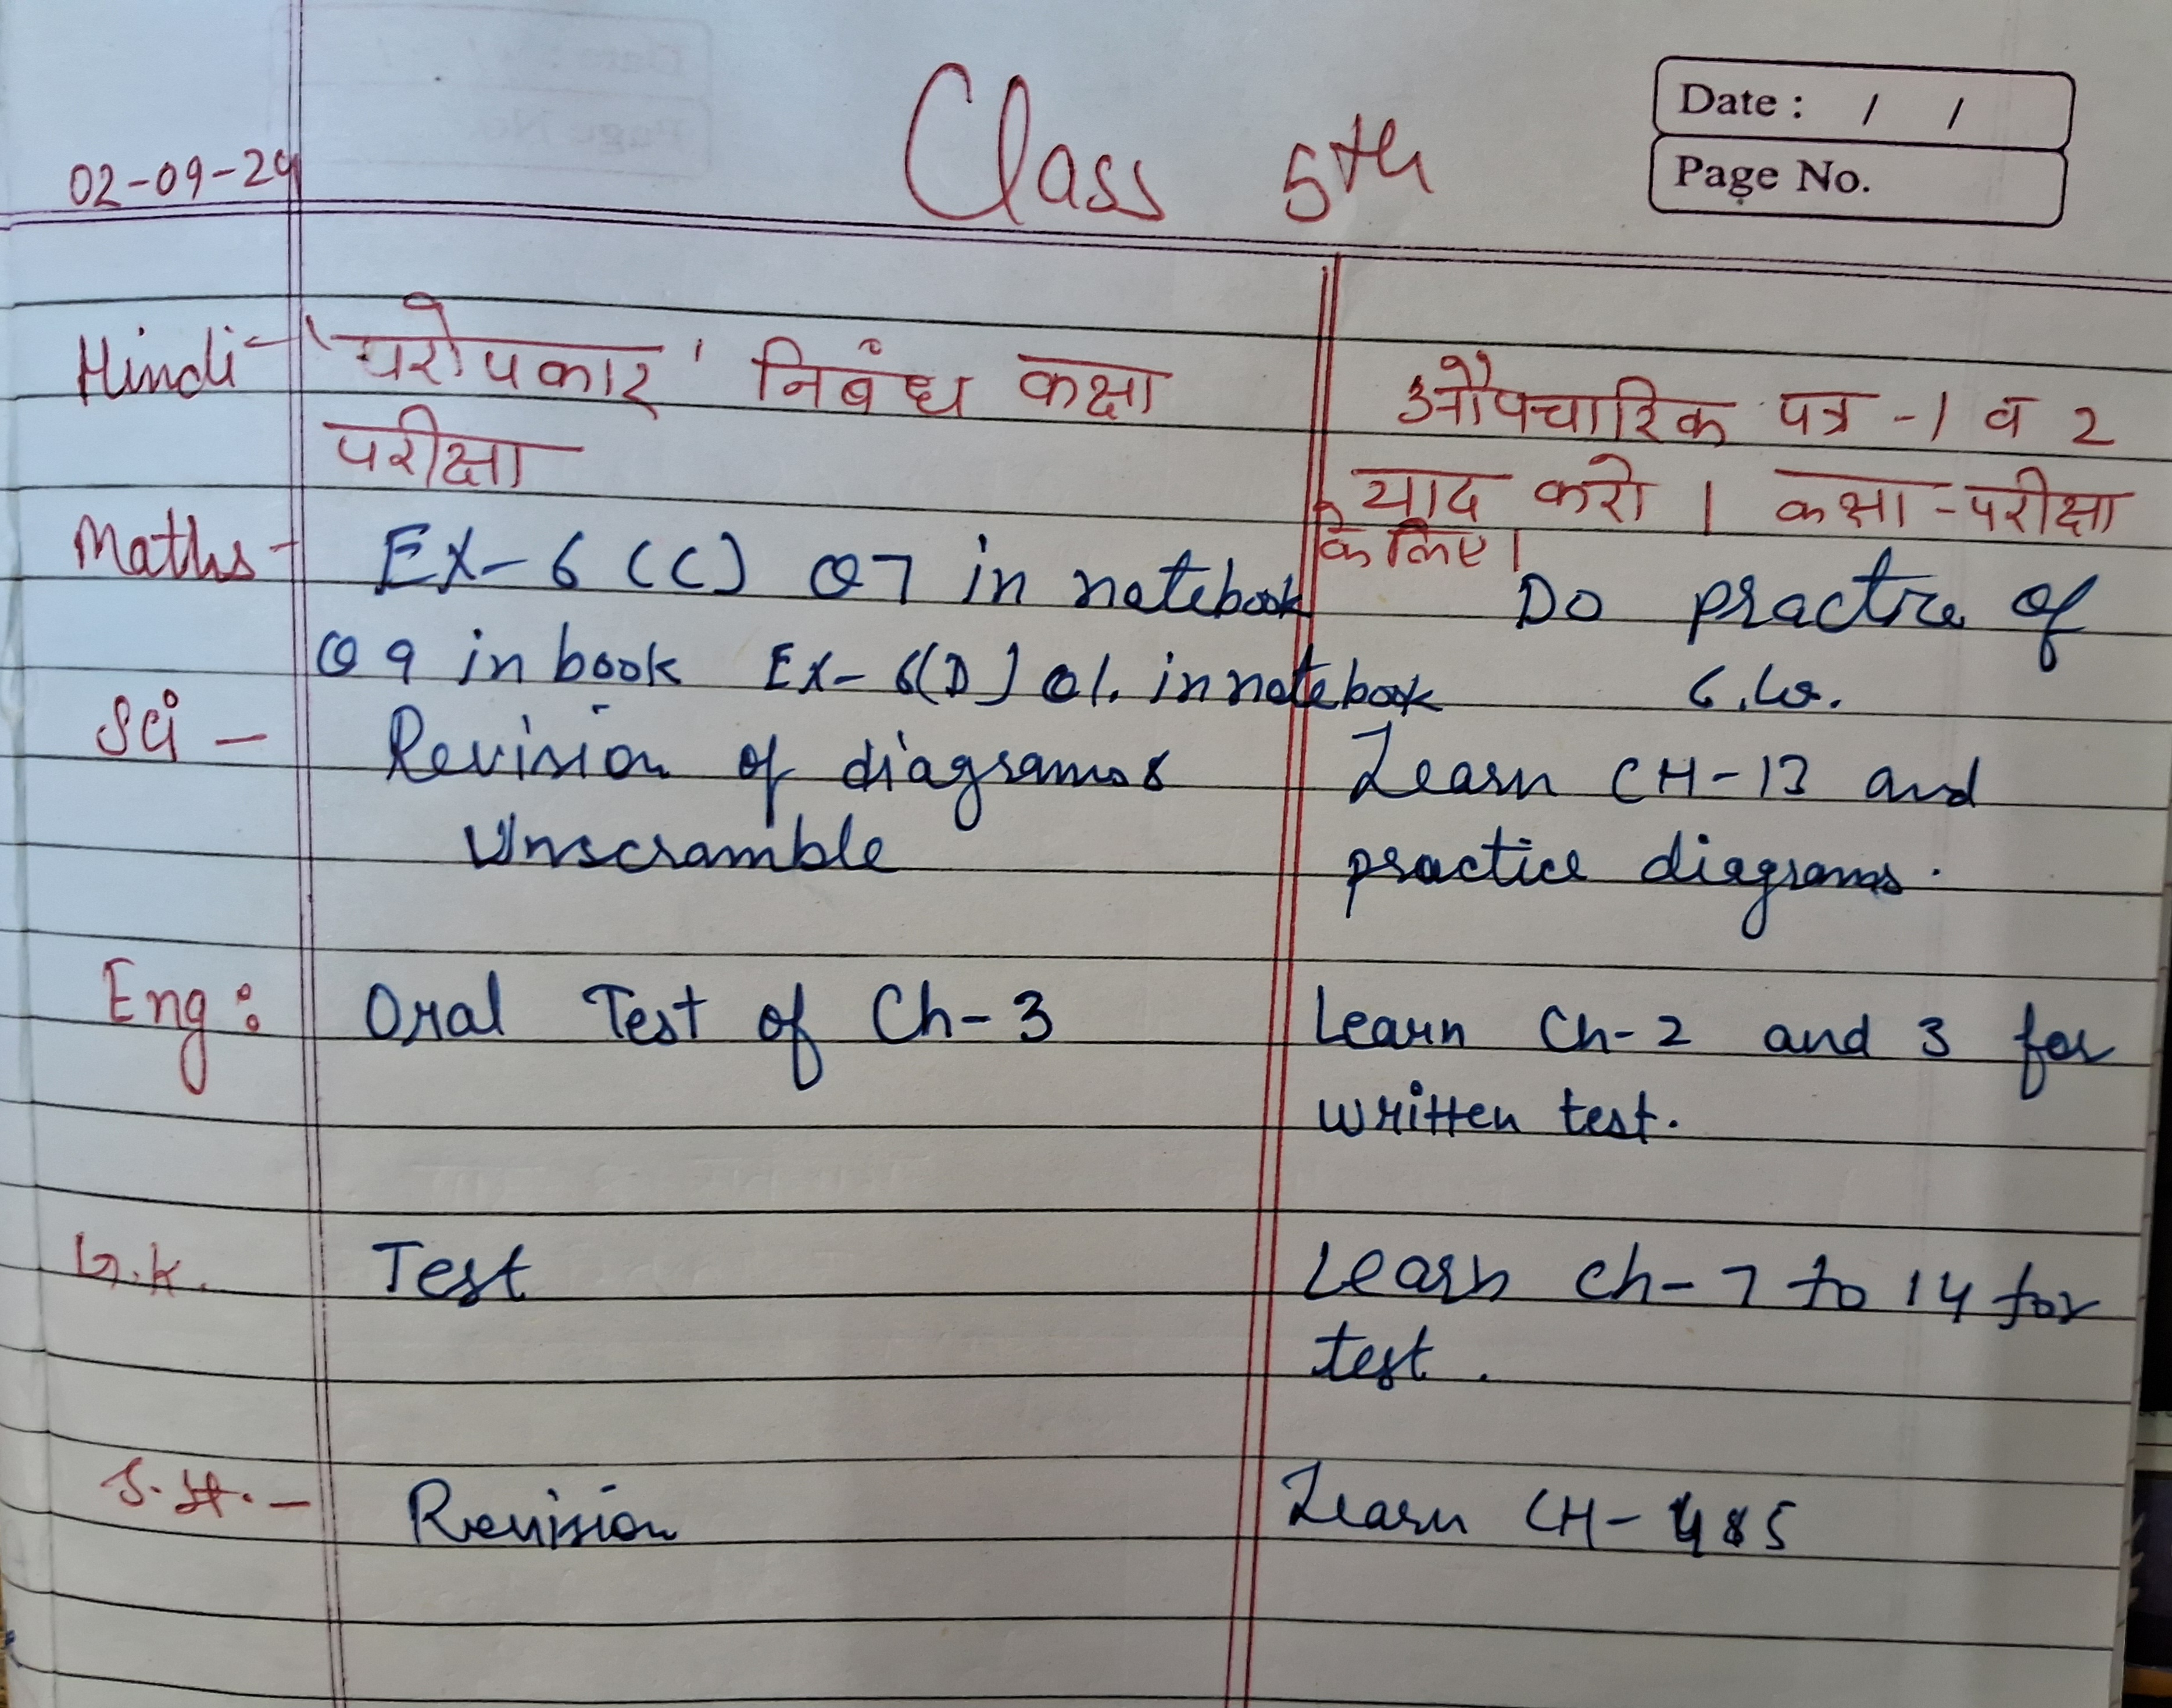 Date : / /
Page No.
02-09-24
Class 5th
Hindi - 'परोपकार' निबंध कक्षा
परीक्षा
औपचारिक पत्र -1 व 2
याद करो । कक्षा-परीक्षा
के लिए।
Maths - EX- 6 (C) Q7 in notebook
Q 9 in book EX- 6(D) Q1. in notebook
Do practice of
C.W.
Sci - Revision of diagrams &
Unscramble
Learn CH-13 and
practice diagrams.
Eng: Oral Test of Ch-3
Learn Ch-2 and 3 for
written test.
G.K. Test
Learn ch-7 to 14 for
test.
S.St. - Revision
Learn CH-4&5